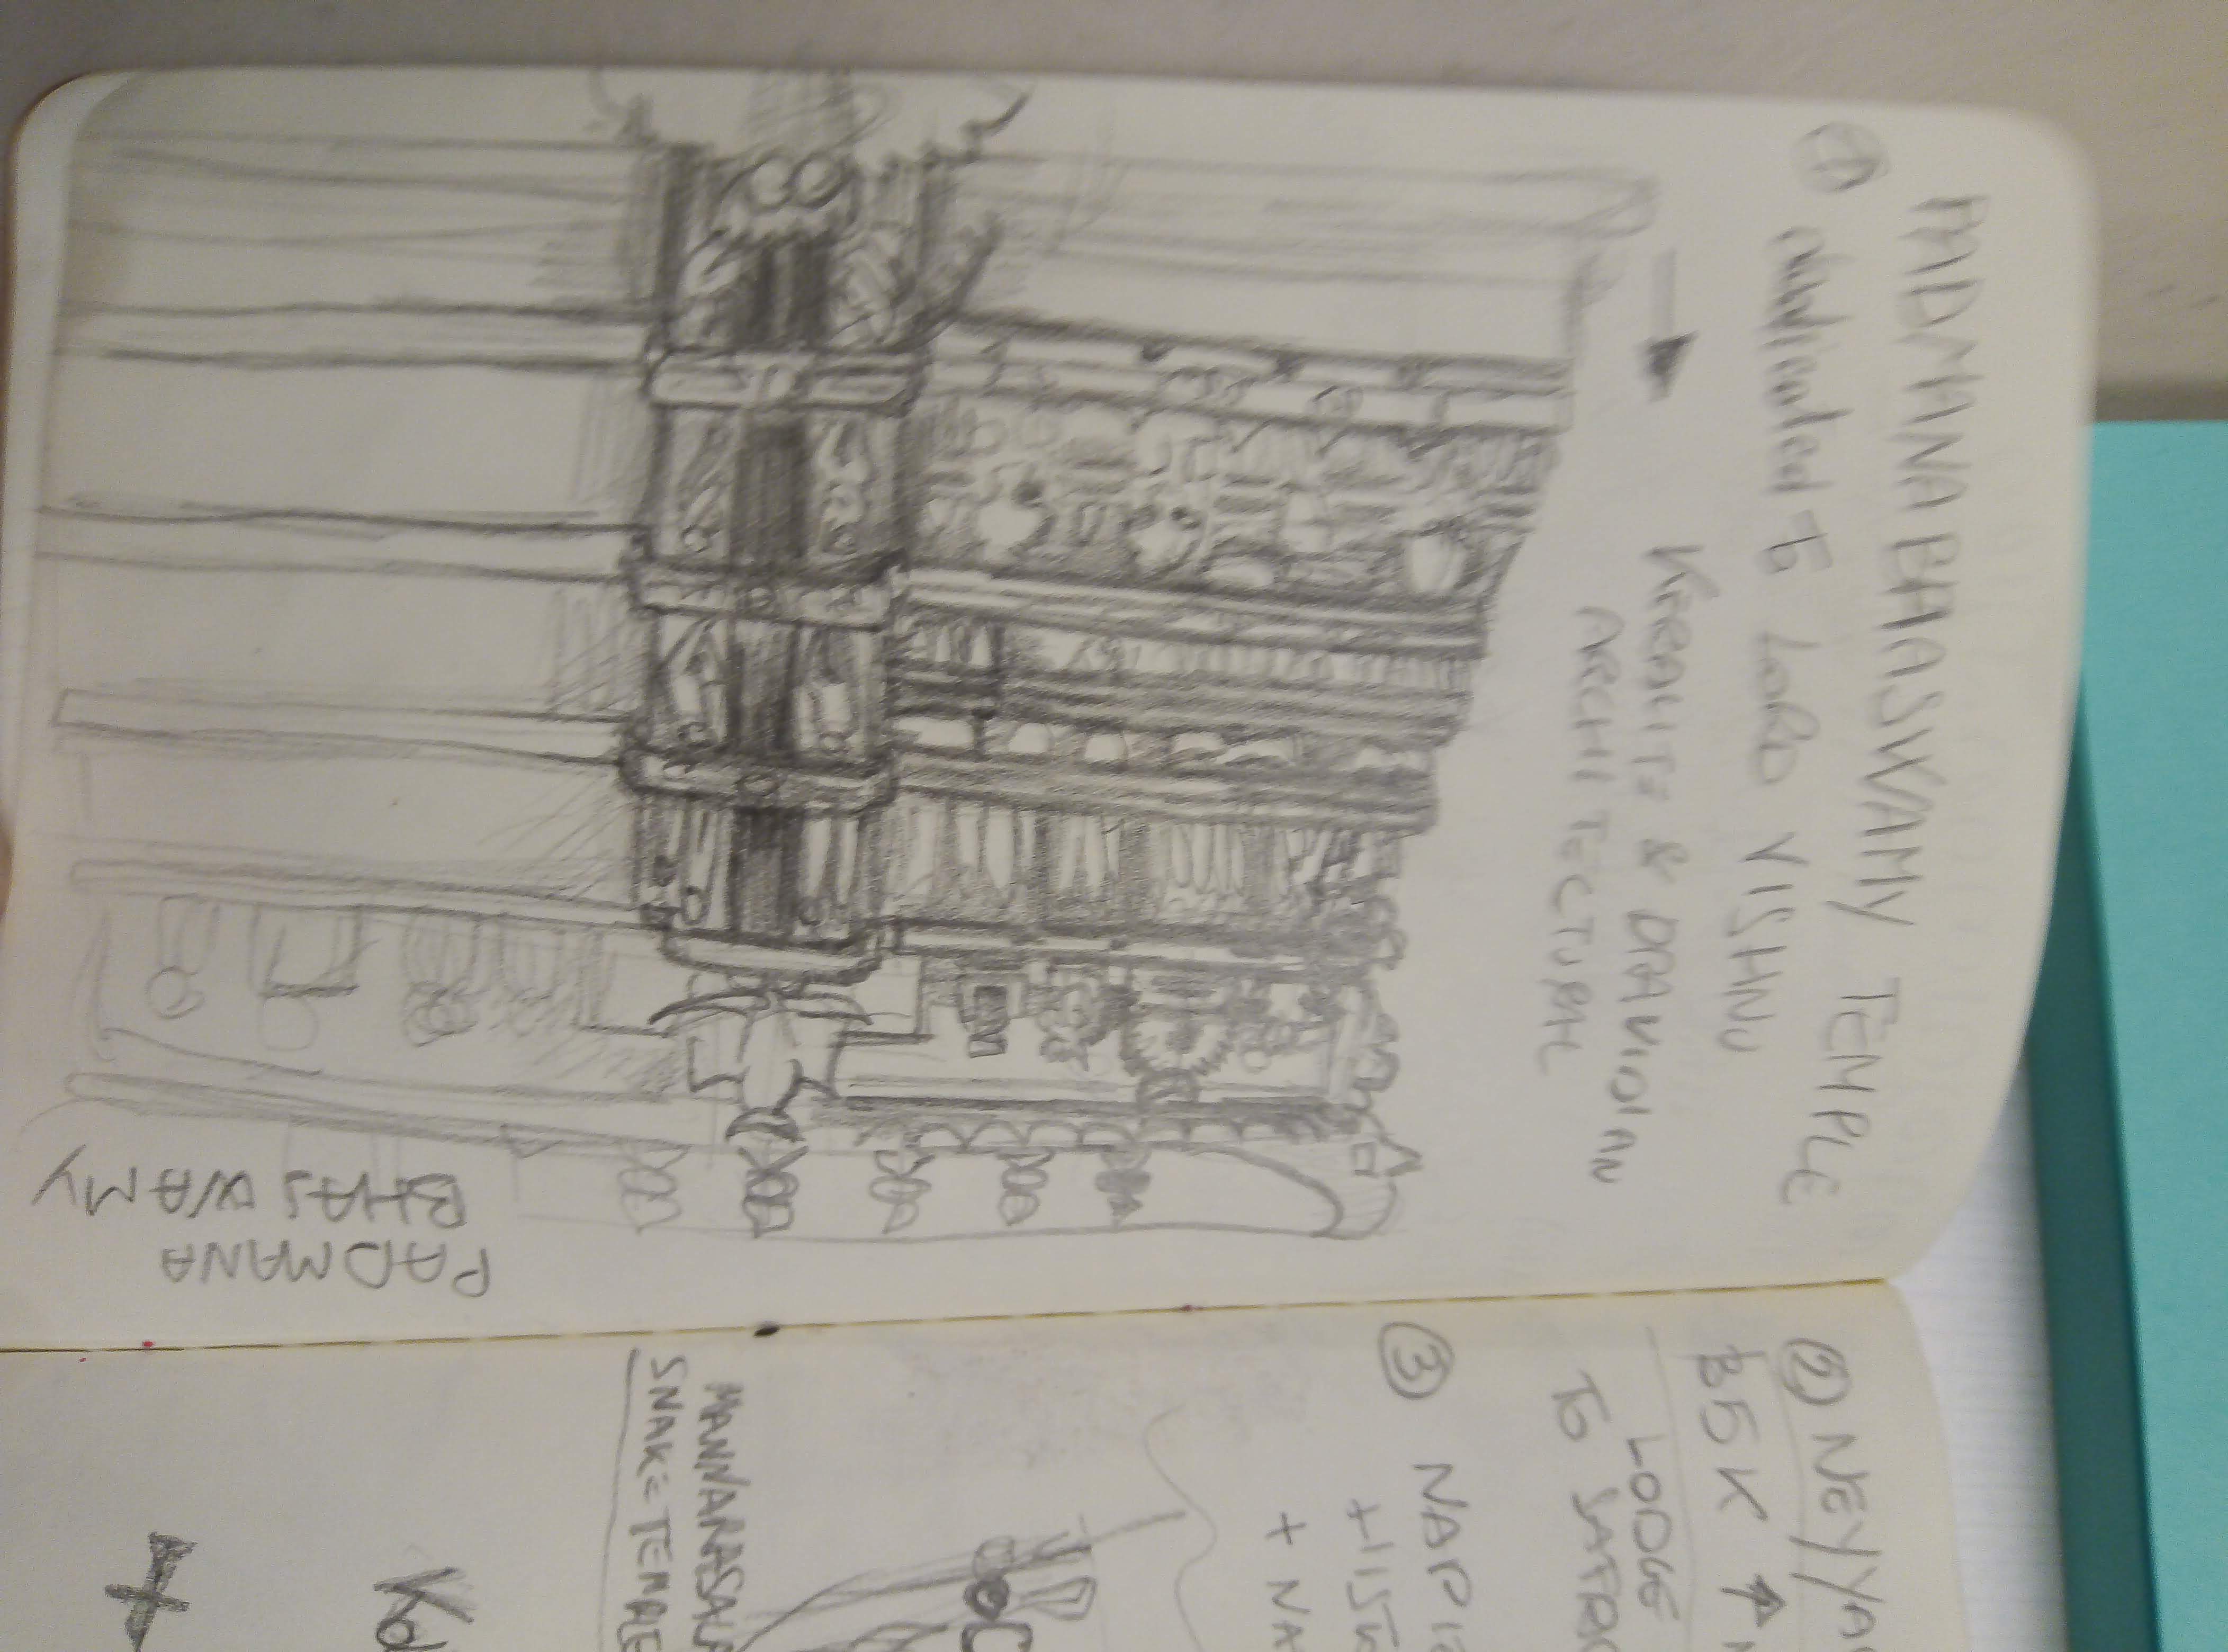 PADMANABHASWAMY TEMPLE
① dedicated to LORD VISHNU
KERALITE & DRAVIDIAN
ARCHITECTURE
PADMANA
BHASWAMY
② NEYYA
LODGE
TO
③ NAPIE
+ HIST
+ NA
MANNARASALA
SNAKE TEMPLE